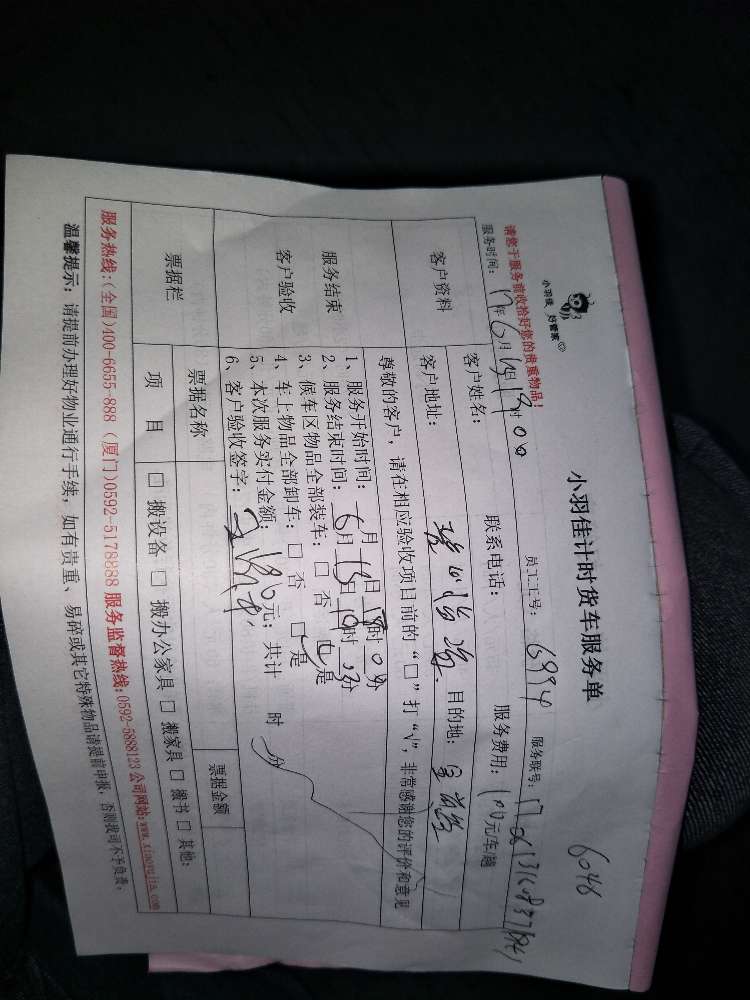 小羽佳 好管家
小羽佳计时货车服务单
6046
请您于服务前收拾好您的贵重物品！
服务时间： 17年6月13日19时00 员工工号： 6994 服务联号：
客户资料
客户姓名： 联系电话： 服务费用： 100元/车/趟
客户地址： 目的地：
服务结束
客户验收
尊敬的客户，请在相应验收项目前的“□”打“√”，非常感谢您的评价和意见
1、服务开始时间： 月 日 时 0分
2、服务结束时间： 6月13日 时 分
3、候车区物品全部装车： □ 否 □ 是
4、车上物品全部卸车： □ 否 □ 是
5、本次服务实付金额： 元；共计 时 分
6、客户验收签字：
票据栏
票据名称 票据金额
项 目 □ 搬设备 □ 搬办公家具 □ 搬家具 □ 搬书 □ 其他：
服务热线：(全国)400-6655-888 (厦门)0592-5178888 服务监督热线：0592-5888123 公司网站：www.xiaoyujia.com
温馨提示： 请提前办理好物业通行手续，如有贵重、易碎或其它特殊物品请提前申报，否则我司不予负责。